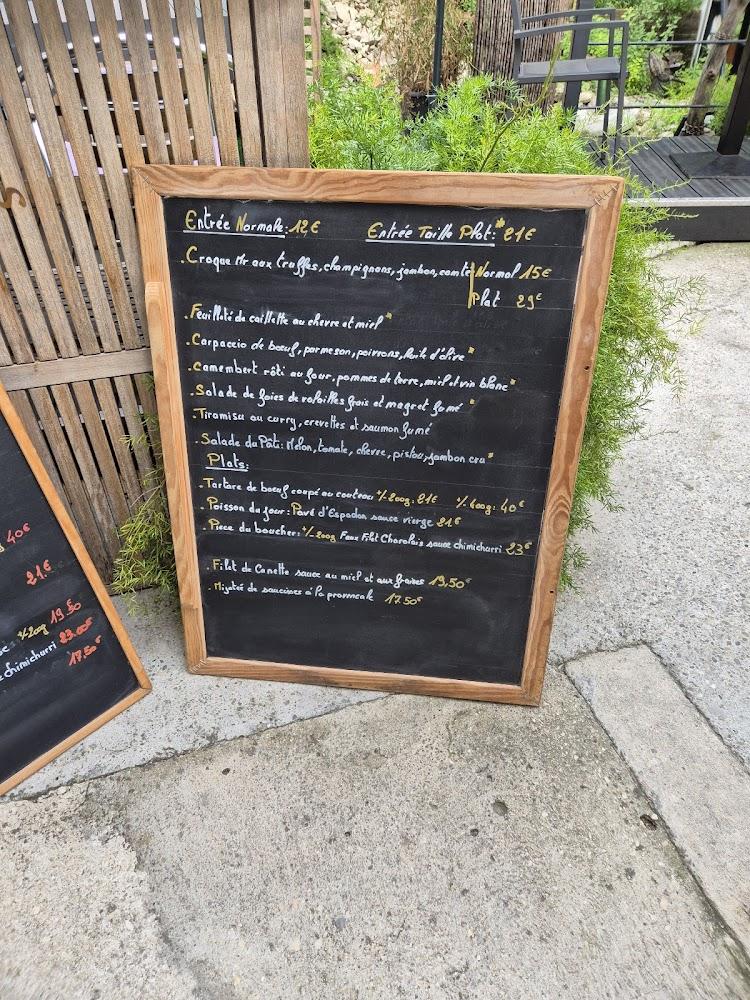 Entrée Normale: 12€ Entrée Taille Plat:* 21€
. Croque Mr aux truffes, champignons, jambon, comté Normal 15€
Plat 29€
. Feuilleté de caillette au chevre et miel *
. Carpaccio de bœuf, parmesan, poivrons, huile d'olive *
. Camembert rôti au four, pommes de terre, miel et vin blanc *
. Salade de foies de volailles frais et magret fumé *
. Tiramisu au curry, crevettes et saumon fumé
. Salade du Pâti: Melon, tomate, chevre, pistou, jambon cru *
Plats:
. Tartare de bœuf coupé au couteau +/- 200g: 21€ +/- 400g: 40€
. Poisson du jour: Pavé d'Espadon sauce vierge 21€
. Piece du boucher: +/- 200g Faux Filet Charolais sauce chimichurri 23€
. Filet de Canette sauce au miel et aux fraises 19,50€
. Mijotée de saucisses à la provencale 17.50€
40€
21.€
+/- 200g 19.50
chimichurri 23.00€
17,50€